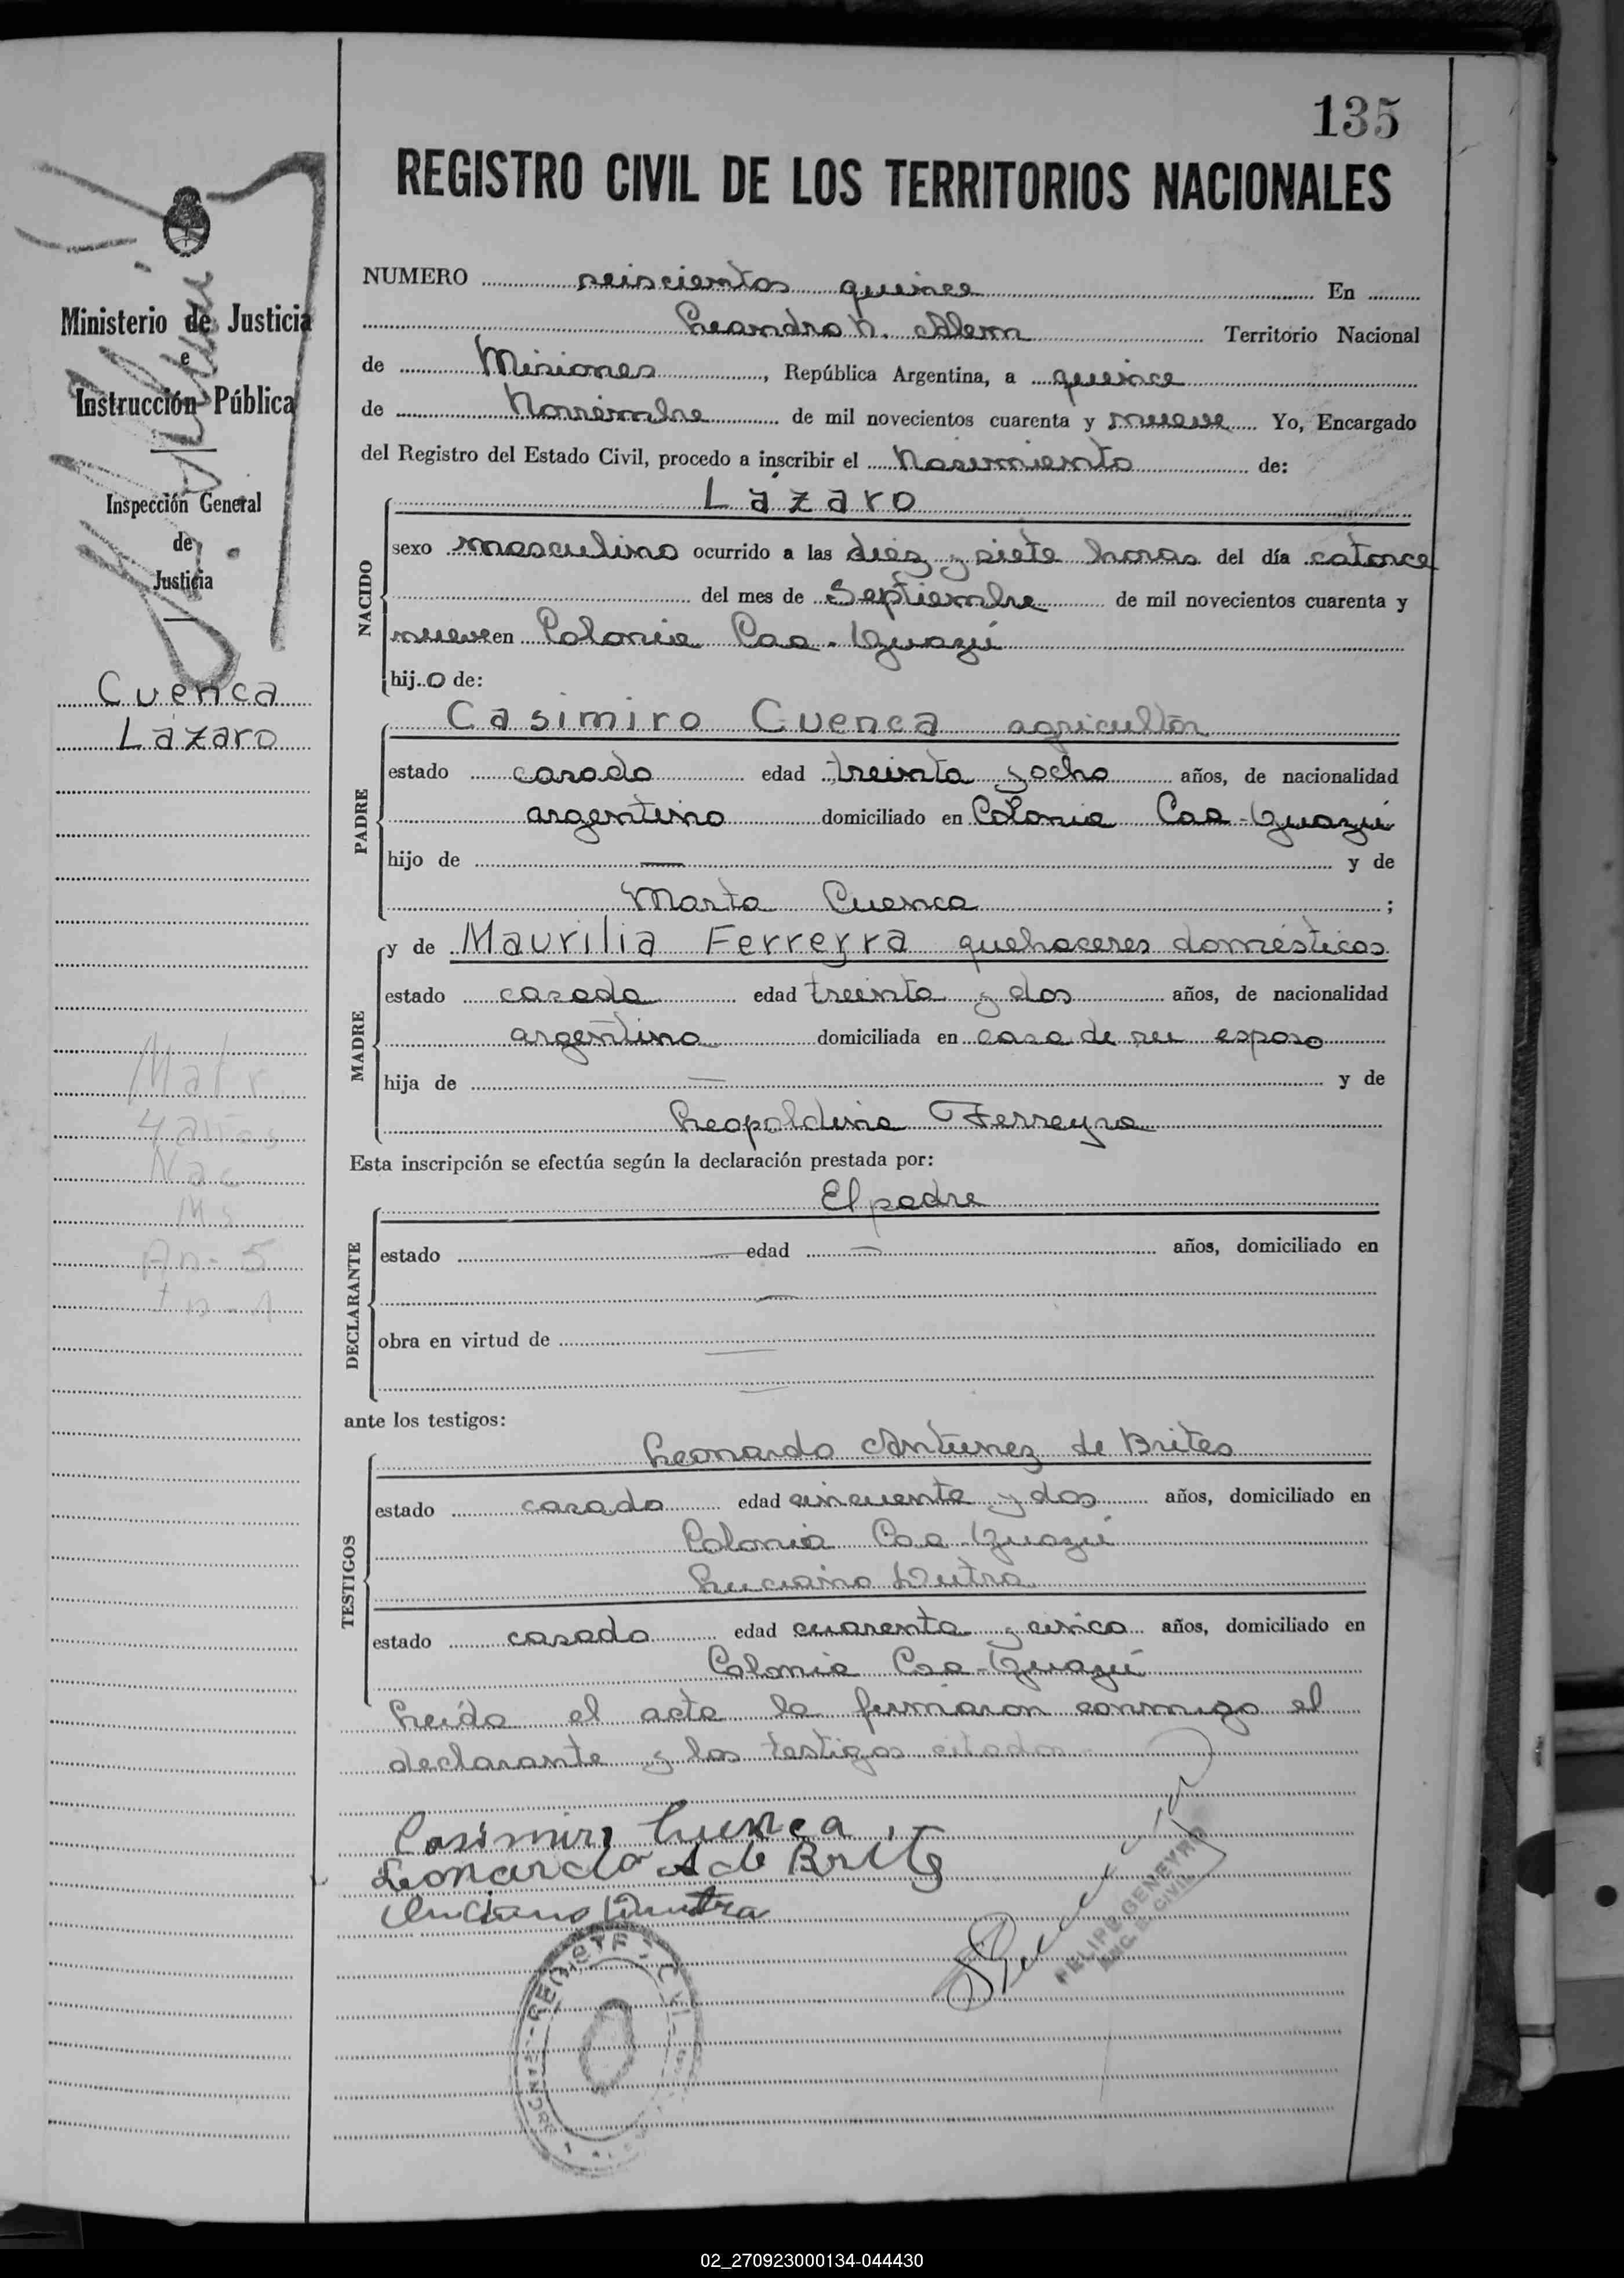 135
REGISTRO CIVIL DE LOS TERRITORIOS NACIONALES
Ministerio de Justicia
e
Instrucción Pública
Inspección General
de
Justicia
Cuenca
Lázaro
Matr.
4 años
Nac
Ms
NUMERO seiscientos quince En
Leandro N. Alem Territorio Nacional
de Misiones, República Argentina, a quince
de Noviembre de mil novecientos cuarenta y nueve Yo, Encargado
del Registro del Estado Civil, procedo a inscribir el Nacimiento de:
NACIDO
Lázaro
sexo masculino ocurrido a las diez y siete horas del día catorce
del mes de Septiembre de mil novecientos cuarenta y
nueve en Colonia Caa-Guazú
hijo de:
PADRE
Casimiro Cuenca agricultor
estado casado edad treinta y ocho años, de nacionalidad
argentino domiciliado en Colonia Caa-Guazú
hijo de — y de
Marta Cuenca ;
MADRE
y de Maurilia Ferreyra quehaceres domésticos
estado casada edad treinta y dos años, de nacionalidad
argentina domiciliada en casa de su esposo
hija de — y de
Leopoldina Ferreyra
Esta inscripción se efectúa según la declaración prestada por:
DECLARANTE
El padre
estado — edad — años, domiciliado en
—
obra en virtud de —
—
ante los testigos:
TESTIGOS
Leonardo Antunez de Brites
estado casado edad cincuenta y dos años, domiciliado en
Colonia Caa Guazú
Luciano Dutra
estado casado edad cuarenta y cinco años, domiciliado en
Colonia Caa-Guazú
Leída el acta la firmaron conmigo el
declarante y los testigos citados
Casimiro Cuenca
Leonardo A de Brites
Luciano Dutra
FELIPE GENEYRO
ENC. R. CIVIL
REGISTRO CIVIL
02_270923000134-044430